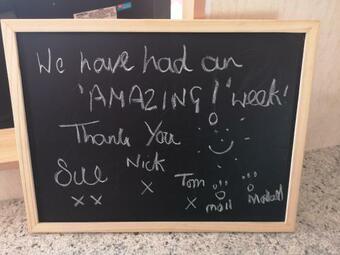 We have had an
'AMAZING!' week'
Thank You
Sue Nick Tom
xx x x